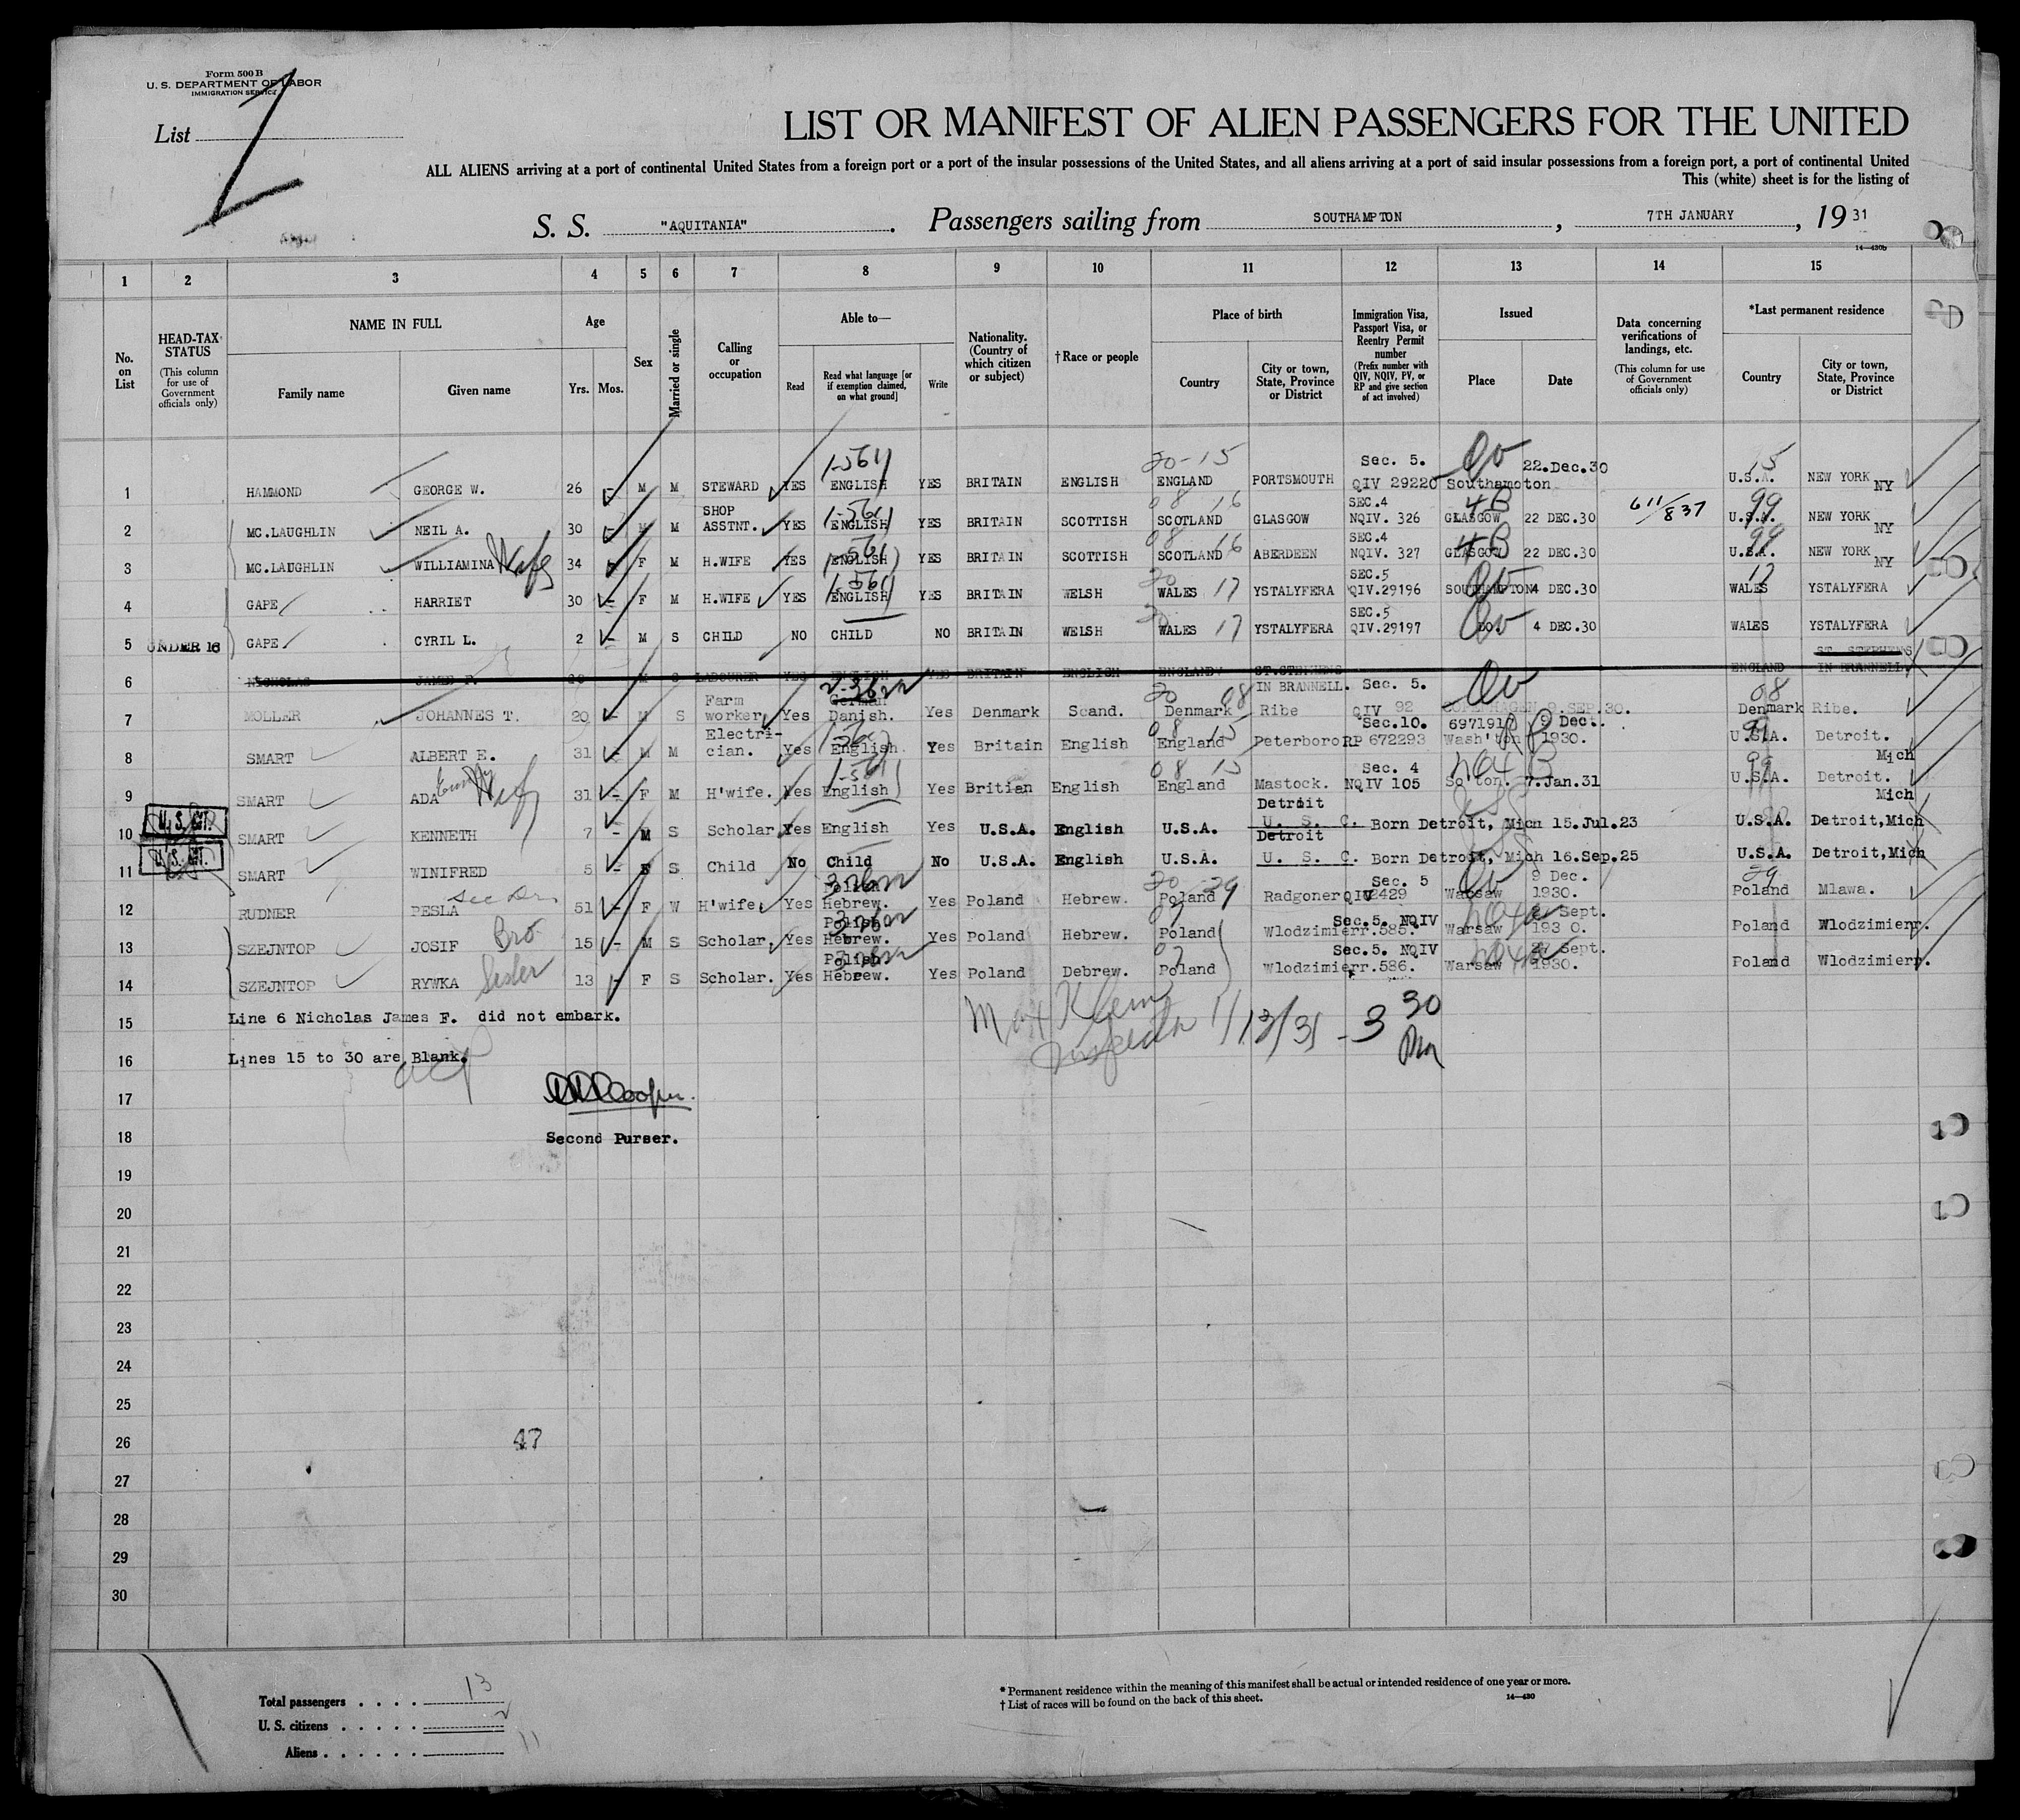 Form 500 B
U. S. DEPARTMENT OF LABOR
IMMIGRATION SERVICE
List
LIST OR MANIFEST OF ALIEN PASSENGERS FOR THE UNITED
ALL ALIENS arriving at a port of continental United States from a foreign port or a port of the insular possessions of the United States, and all aliens arriving at a port of said insular possessions from a foreign port, a port of continental United
This (white) sheet is for the listing of
S. S. "AQUITANIA". Passengers sailing from SOUTHAMPTON, 7TH JANUARY, 19 31
14—430b
1 2 3 4 5 6 7 8 9 10 11 12 13 14 15
No. on List
HEAD-TAX STATUS (This column for use of Government officials only)
NAME IN FULL
Family name
Given name
Age
Yrs. Mos.
Sex
Married or single
Calling or occupation
Able to—
Read
Read what language [or if exemption claimed, on what ground]
Write
Nationality. (Country of which citizen or subject)
† Race or people
Place of birth
Country
City or town, State, Province or District
Immigration Visa, Passport Visa, or Reentry Permit number (Prefix number with QIV, NQIV, PV, or RP and give section of act involved)
Issued
Place
Date
Data concerning verifications of landings, etc. (This column for use of Government officials only)
*Last permanent residence
Country
City or town, State, Province or District
1 HAMMOND GEORGE W. 26 - M M STEWARD YES 1-561 ENGLISH YES BRITAIN ENGLISH 20-15 ENGLAND PORTSMOUTH Sec. 5. QIV 29220 Southampton 22.Dec.30 15 U.S.A. NEW YORK NY
2 MC.LAUGHLIN NEIL A. 30 - M M SHOP ASSTNT. YES 1-561 ENGLISH YES BRITAIN SCOTTISH 08 16 SCOTLAND GLASGOW SEC.4 NQIV. 326 4B GLASGOW 22 DEC.30 611/837 99 U.S.A. NEW YORK NY
3 MC.LAUGHLIN WILLIAMINA Wife 34 F M H.WIFE YES 1-561 ENGLISH YES BRITAIN SCOTTISH 08 16 SCOTLAND ABERDEEN SEC.4 NQIV. 327 4B GLASGOW 22 DEC.30 99 U.S.A. NEW YORK NY
4 GAPE HARRIET 30 - F M H.WIFE YES 1-561 ENGLISH YES BRITAIN WELSH 20 WALES 17 YSTALYFERA SEC.5 QIV.29196 SOUTHAMPTON 4 DEC.30 17 WALES YSTALYFERA
5 UNDER 16 GAPE CYRIL L. 2 - M S CHILD NO CHILD NO BRITAIN WELSH 20 WALES 17 YSTALYFERA SEC.5 QIV.29197 DO 4 DEC.30 WALES YSTALYFERA
6 NICHOLAS JAMES F. M S LABOURER YES ENGLISH YES BRITAIN ENGLISH ENGLAND ST.STEPHENS IN BRANNELL. Sec. 5. ENGLAND ST. STEPHENS IN BRANNELL.
7 MOLLER JOHANNES T. 20 - M S Farm worker, Yes German Danish. Yes Denmark Scand. 20 08 Denmark Ribe QIV 92 COPENHAGEN 9.SEP.30. 08 Denmark Ribe.
8 SMART ALBERT E. 31 - M M Electri-cian. Yes English. Yes Britain English 08 15 England Peterboro Sec.10. RP 672293 697191 Wash'ton 9 Dec. 1930. 99 U.S.A. Detroit. Mich
9 SMART ADA Emily Wife 31 - F M H'wife. Yes 1-561 English Yes Britian English 08 15 England Mastock. Sec. 4 NQIV 105 So'ton. 7.Jan.31 99 U.S.A. Detroit. Mich
10 U.S. CIT. SMART KENNETH 7 - M S Scholar Yes English Yes U.S.A. English U.S.A. Detroit U. S. C. Born Detroit, Mich 15.Jul.23 U.S.A. Detroit,Mich
11 U.S. CIT. SMART WINIFRED 5 - S Child No Child No U.S.A. English U.S.A. Detroit U. S. C. Born Detroit, Mich 16.Sep.25 U.S.A. Detroit,Mich
12 RUDNER PESLA 51 - F W H'wife. Yes Polish Hebrew. Yes Poland Hebrew. 20-29 Poland Radgoner Sec. 5 QIV 2429 Warsaw 9 Dec. 1930. 29 Poland Mlawa.
13 SZEJNTOP JOSIF Bro 15 - M S Scholar. Yes Polish Hebrew. Yes Poland Hebrew. 07 Poland Wlodzimierr. Sec.5. NQIV 585. Warsaw Sept. 193 0. Poland Wlodzimierr.
14 SZEJNTOP RYWKA Sister 13 - F S Scholar. Yes Polish Hebrew. Yes Poland Debrew. 07 Poland Wlodzimierr. Sec.5. NQIV 586. Warsaw Sept. 1930. Poland Wlodzimierr.
15 Line 6 Nicholas James F. did not embark.
Max Klein Inspector 1/13/31 - 3 30 PM
16 Lines 15 to 30 are Blank.
17
18 Second Purser.
19
20
21
22
23
24
25
26 47
27
28
29
30
Total passengers . . . . 13
U. S. citizens . . . . . 2
Aliens . . . . . . 11
* Permanent residence within the meaning of this manifest shall be actual or intended residence of one year or more.
† List of races will be found on the back of this sheet.
14—430